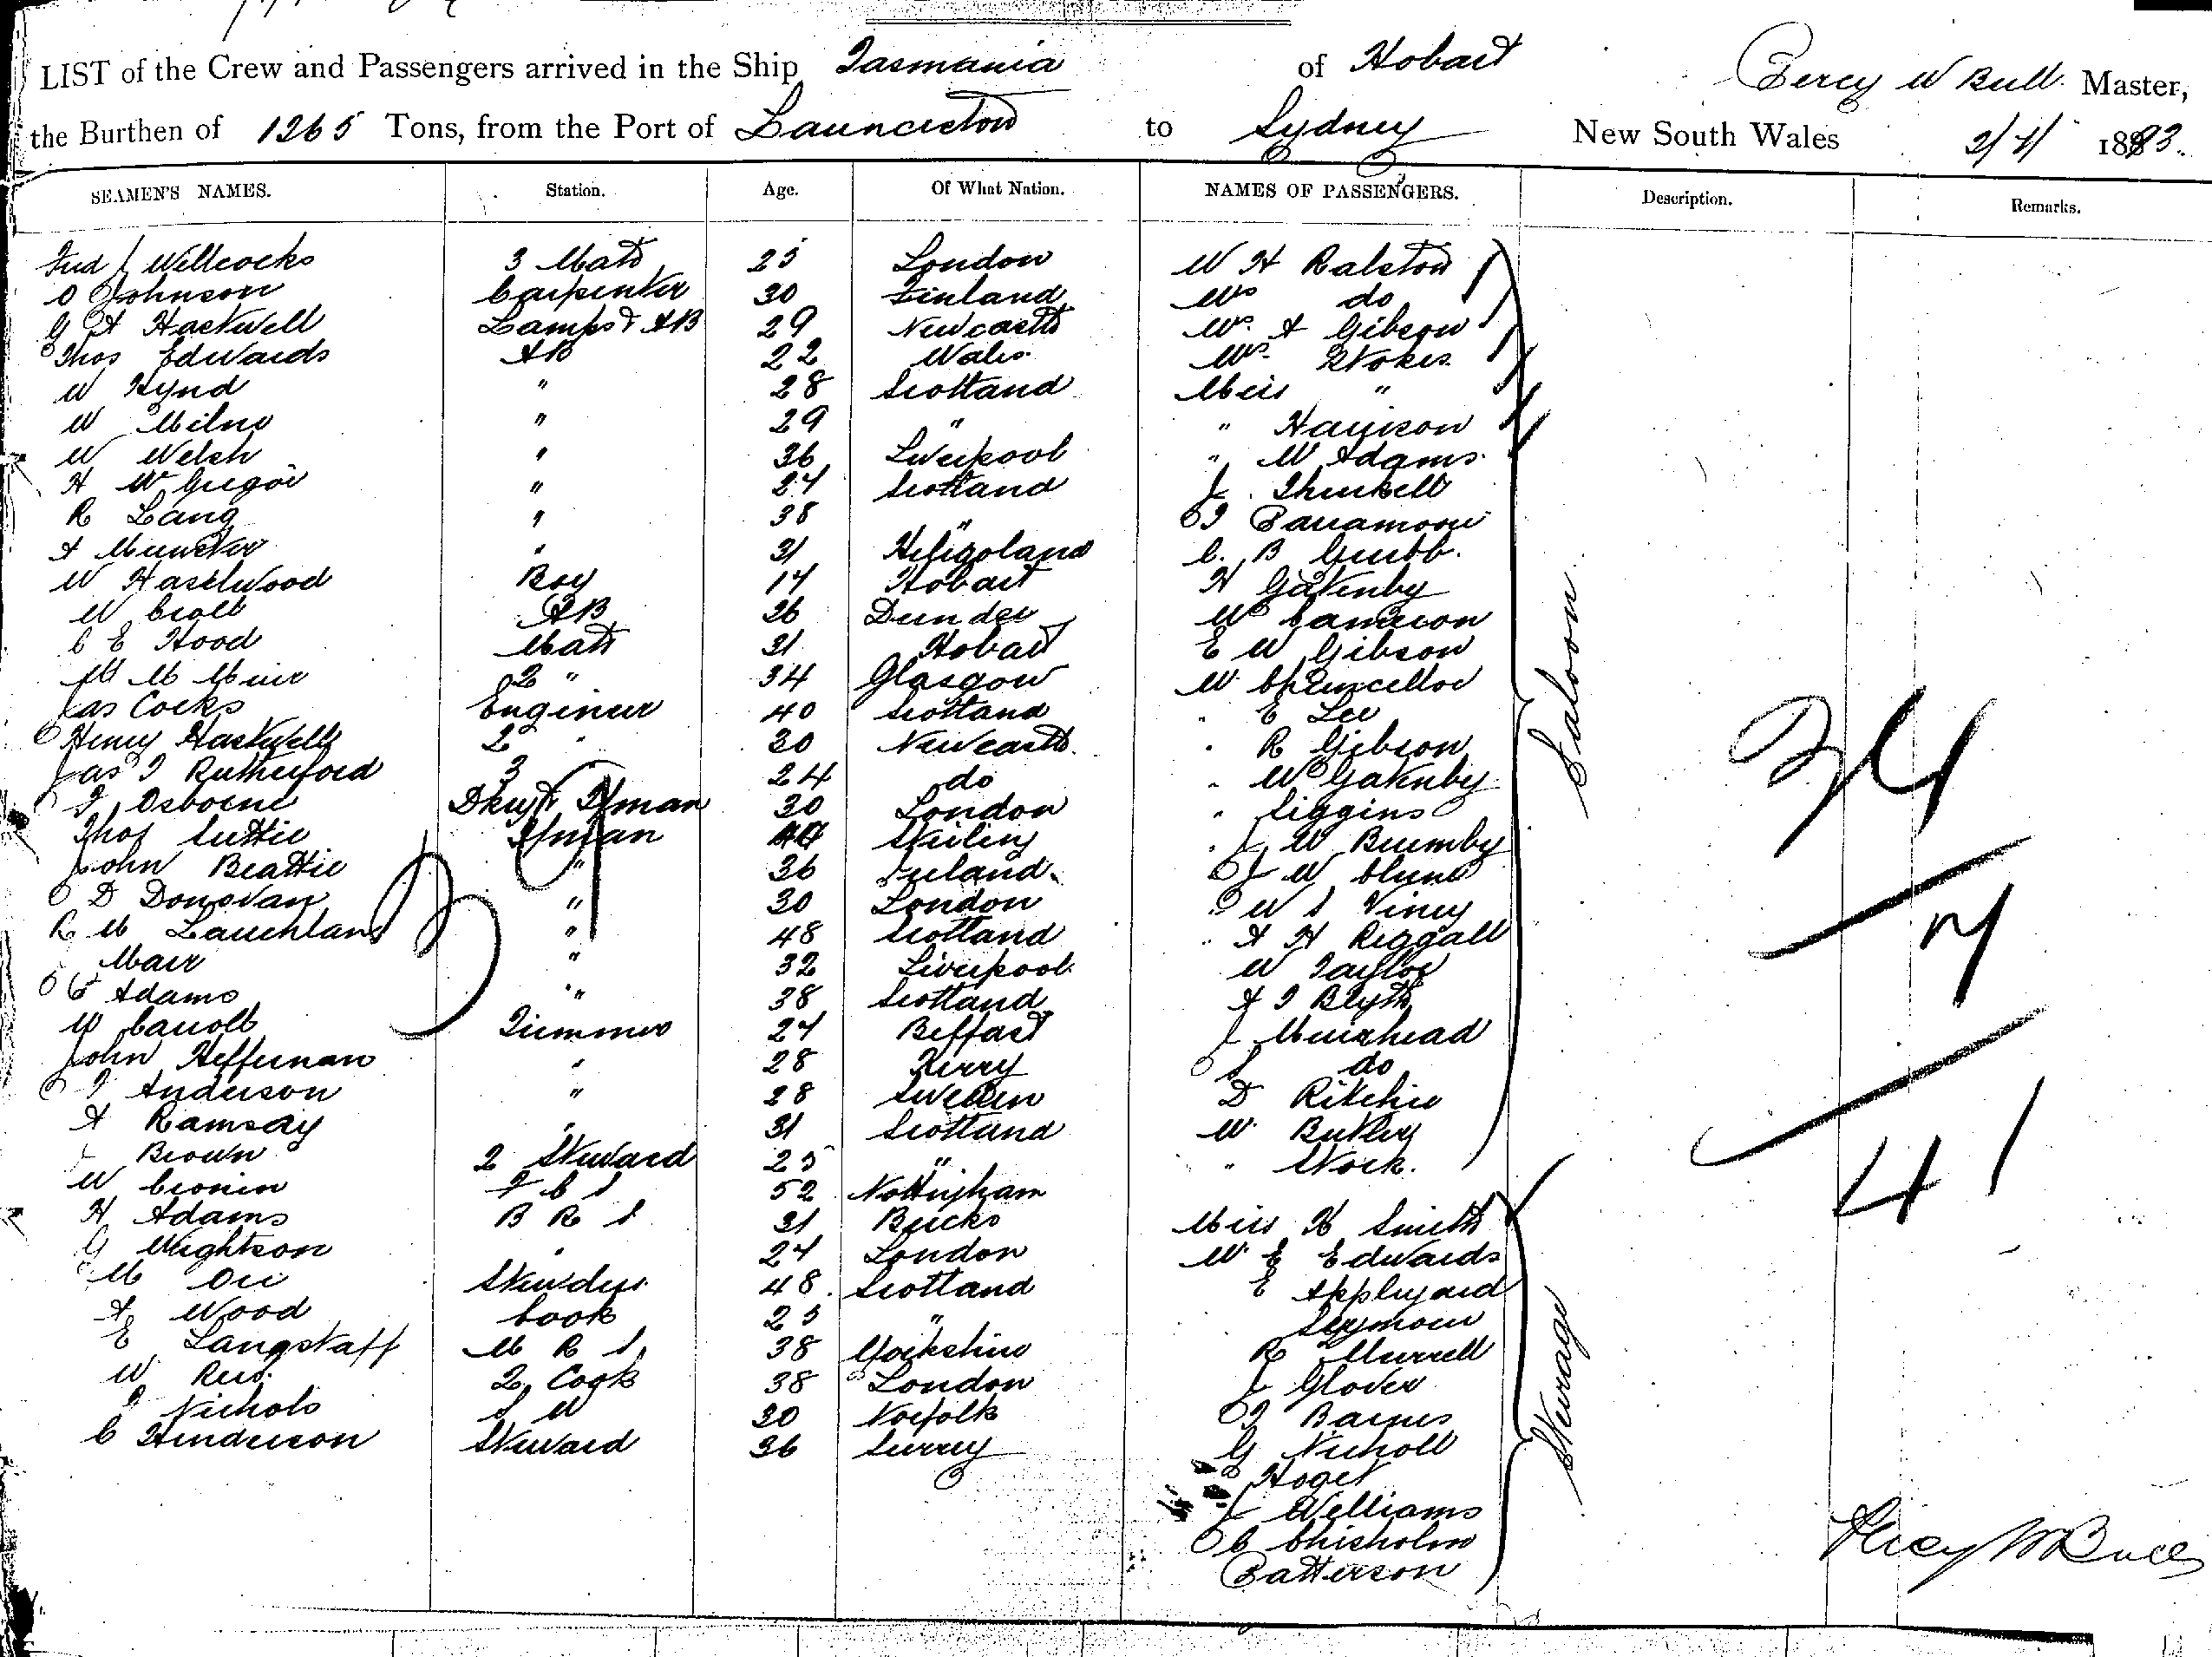 LIST of the Crew and Passengers arrived in the Ship Tasmania of Hobart Percy W Bull Master,
the Burthen of 1265 Tons, from the Port of Launceston to Sydney New South Wales 2/4/ 1893.
SEAMEN'S NAMES. Station. Age. Of What Nation. NAMES OF PASSENGERS. Description. Remarks.
Fred J Willcocks 3 Mate 25 London W H Ralston
O Johnson Carpenter 30 Finland Mrs do
G A Hastwell Lamps & AB 29 Newcastle Mrs A Gibson
Thos Edwards AB 22 Wales Mrs Stokes
W Hynd " 28 Scotland Miss "
W Milne " 29 " " Harrison
W Welsh " 36 Liverpool " M Adams
H McGregor " 24 Scotland J Thirkell
R Lang " 38 " T Parramore
A Munster " 31 Heligoland C. B Grubb.
W Haselwood Boy 14 Hobart H Gatenby
W Croll AB 26 Dundee Mr Cameron
C E Hood Mate 31 Hobart E W Gibson
M M Muir 2 " 34 Glasgow W Chancellor
Jas Cocks Engineer 40 Scotland " E Lee
Henry Hastwell 2 " 30 Newcastle " R Gibson
Jas T Rutherford 3 " 24 do " W Gatenby
T Osborne Dkey & Fman 30 London " Siggins
Thos Suttie Fman Stirling " J W Brumby
John Beattie " 36 Ireland J W
D Donovan " 30 London W S Viney
R M Lauchland " 48 Scotland A H Riggall
Mair " 32 Liverpool W Taylor
Adams " 38 Scotland A T Blyth
W Carroll Trimmer 24 Belfast J Muirhead
John Heffernan " 28 Kerry S do
T Anderson " 28 Sweden D Ritchie
A Ramsay " 31 Scotland W Butler
Brown 2 Steward 25 " " Stock.
Saloon
W Cronin F C S 52 Nottingham
H Adams B R S 31 Bucks Miss H Smith
G Wightson " 24 London W E Edwards
M Orr Stewdess 48 Scotland E Appleyard
A Wood Cook 25 " Seymour
E Langstaff M R S 38 Yorkshire R Murrell
W Reid 2 Cook 38 London J Glover
T Nichols S M 30 Norfolk T Barnes
C Henderson Steward 36 Surrey G Nicholl
Hoget
J Williams
C Chisholm
Patterson
Steerage
34
7
41
Percy W Bull